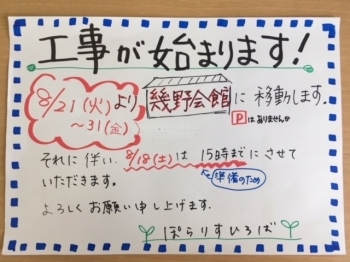 工事が始まります！
8/21(火)より
～31(金)
幾野会館に移動します。
Pはありません
それに伴い、8/18(土)は 15時までにさせて
いただきます。
準備のため
よろしくお願い申し上げます。
ぽらりすひろば